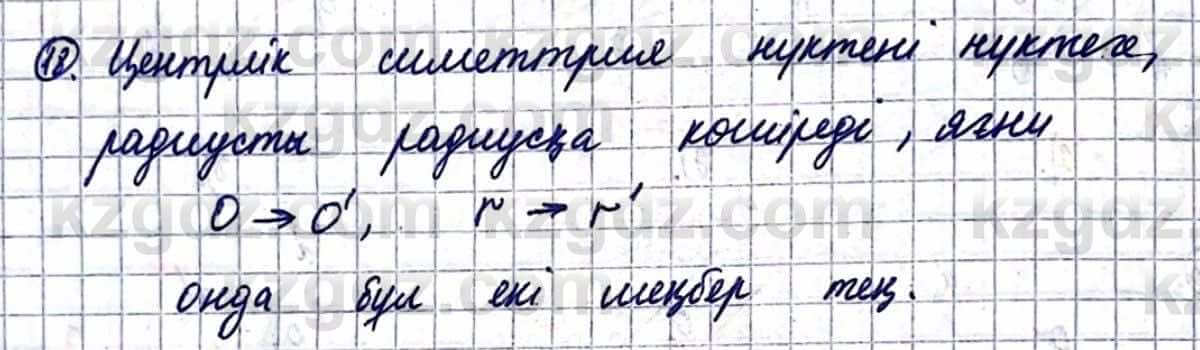 18. Центрлік симеттрия нүктені нүктеге,
радиусты радиусқа көшіреді, яғни
O → O', r → r'
онда бұл екі шеңбер тең.